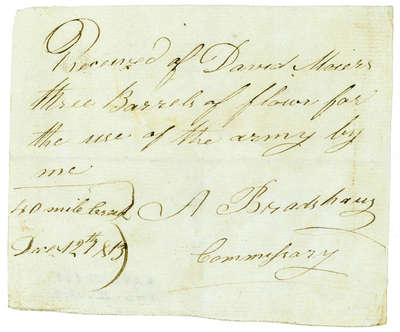 Received of David Moiers
three Barrels of flour for
the use of the army by
me
40 mile Creek A Bradshaw
Dec 12th 1813
Commissary